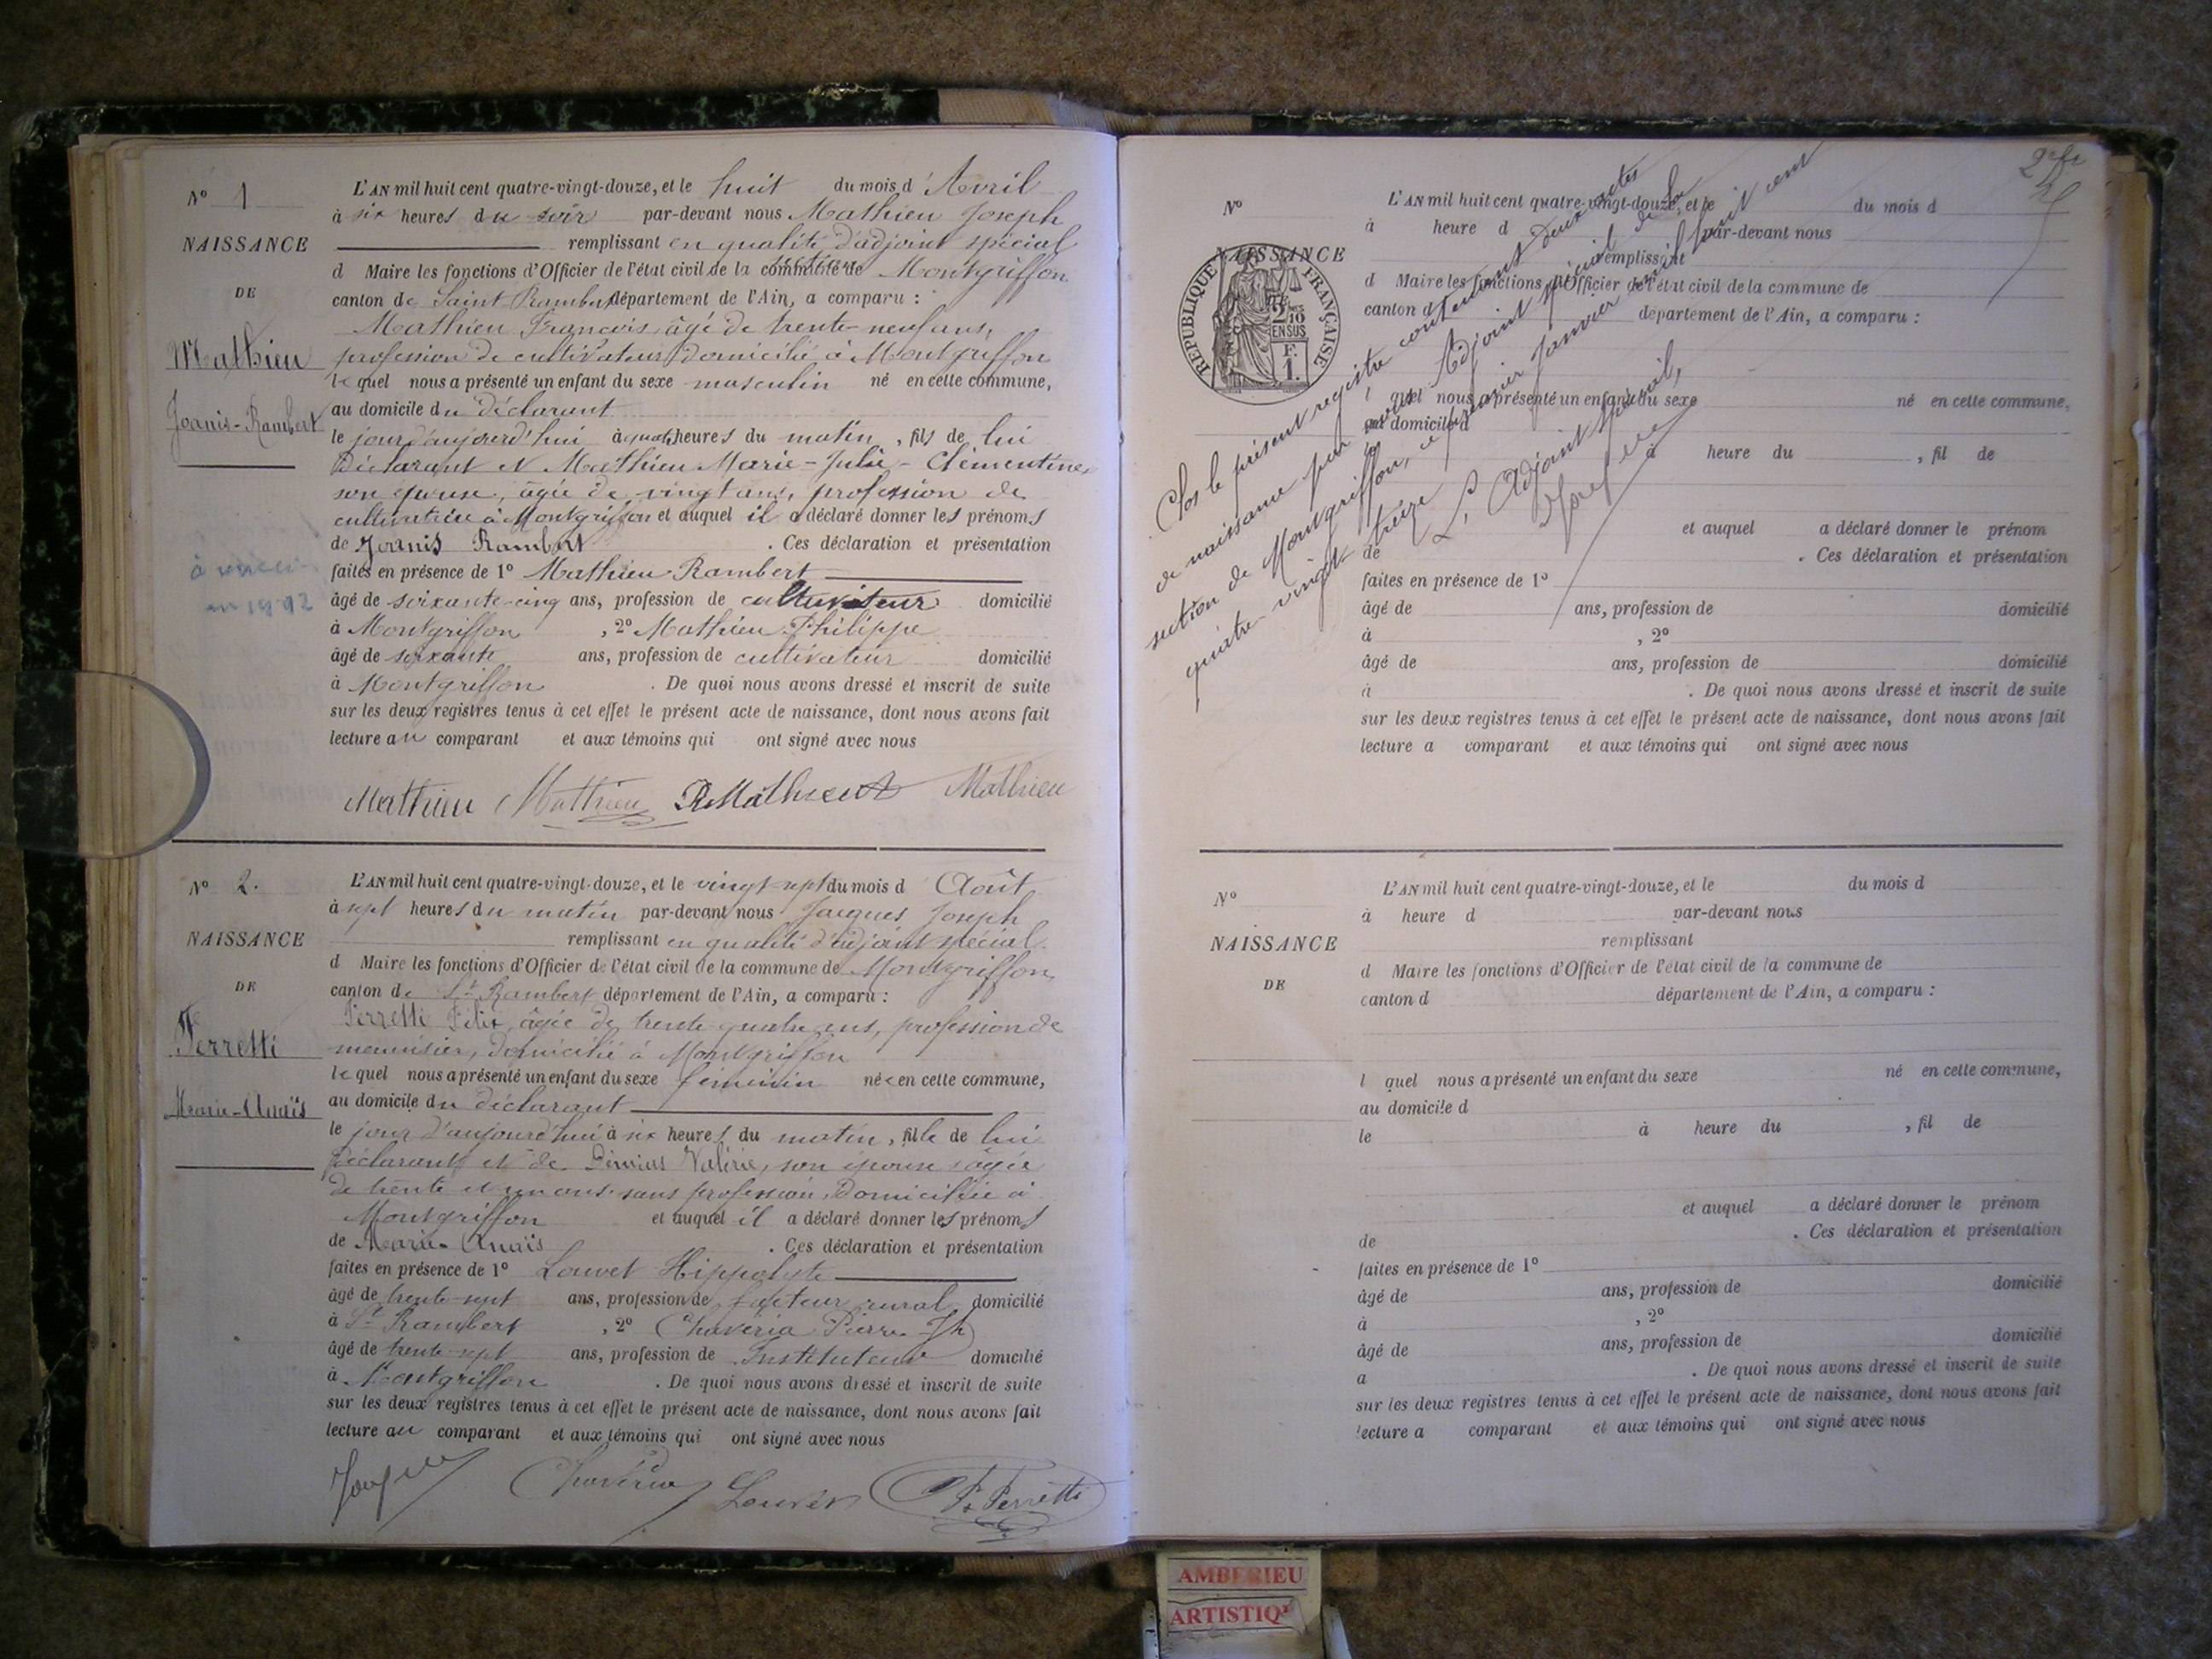 N° 1
NAISSANCE
DE
Mathieu
Joanis-Rambert
à
en 1992
L'AN mil huit cent quatre-vingt-douze, et le huit du mois d'Avril
à six heures du soir par-devant nous Mathieu Joseph
remplissant en qualité d'adjoint spécial
d Maire les fonctions d'Officier de l'état civil de la section de Montgriffon
canton de Saint Rambert département de l'Ain, a comparu :
Mathieu François, âgé de trente-neuf ans,
profession de cultivateur, domicilié à Montgriffon
lequel nous a présenté un enfant du sexe masculin né en cette commune,
au domicile du déclarant
le jour d'aujourd'hui à quatre heures du matin, fils de lui
Déclarant et Mathieu Marie-Julie-Clémentine,
son épouse, âgée de vingt ans, profession de
cultivatrice à Montgriffon et auquel il a déclaré donner les prénoms
de Joanis Rambert . Ces déclaration et présentation
faites en présence de 1° Mathieu Rambert
âgé de soixante-cinq ans, profession de cultivateur domicilié
à Montgriffon , 2° Mathieu Philippe
âgé de soixante ans, profession de cultivateur domicilié
à Montgriffon . De quoi nous avons dressé et inscrit de suite
sur les deux registres tenus à cet effet le présent acte de naissance, dont nous avons fait
lecture au comparant et aux témoins qui ont signé avec nous
Mathieu Mathieu R Mathieu Mathieu
N° 2.
NAISSANCE
DE
Ferretti
Marie-Anaïs
L'AN mil huit cent quatre-vingt-douze, et le vingt sept du mois d Août
à sept heures du matin par-devant nous Jacques Joseph
remplissant en qualité d'adjoint spécial
d Maire les fonctions d'Officier de l'état civil de la commune de Montgriffon
canton de St Rambert département de l'Ain, a comparu :
Ferretti Félix, âgée de trente quatre ans, profession de
menuisier, domicilié à Montgriffon
lequel nous a présenté un enfant du sexe féminin née en cette commune,
au domicile du déclarant
le jour d'aujourd'hui à six heures du matin, fille de lui
déclarant et de Valérie, son épouse âgée
de trente et un ans, sans profession, domiciliée à
Montgriffon et auquel il a déclaré donner les prénoms
de Marie-Anaïs . Ces déclaration et présentation
faites en présence de 1° Louvet Hippolyte
âgé de trente-sept ans, profession de facteur rural domicilié
à St Rambert , 2° Chavéria Pierre Jh
âgé de trente-sept ans, profession de Instituteur domicilié
à Montgriffon . De quoi nous avons dressé et inscrit de suite
sur les deux registres tenus à cet effet le présent acte de naissance, dont nous avons fait
lecture au comparant et aux témoins qui ont signé avec nous
Chavéria Louvet F. Ferretti
N°
NAISSANCE
RÉPUBLIQUE FRANÇAISE
2/10
EN SUS
F.
1.
L'AN mil huit cent quatre-vingt-douze, et le du mois d
à heure d par-devant nous
remplissant
d Maire les fonctions d'Officier de l'état civil de la commune de
canton d département de l'Ain, a comparu :
l quel nous a présenté un enfant du sexe né en cette commune,
au domicile d
à heure du , fil de
et auquel a déclaré donner le prénom
de . Ces déclaration et présentation
faites en présence de 1°
âgé de ans, profession de domicilié
à , 2°
âgé de ans, profession de domicilié
à . De quoi nous avons dressé et inscrit de suite
sur les deux registres tenus à cet effet le présent acte de naissance, dont nous avons fait
lecture a comparant et aux témoins qui ont signé avec nous
Clos le présent registre contenant deux actes
de naissance par nous Adjoint spécial de la
section de Montgriffon, ce premier Janvier mil huit cent
quatre-vingt treize
L'Adjoint spécial,
N°
NAISSANCE
DE
L'AN mil huit cent quatre-vingt-douze, et le du mois d
à heure d par-devant nous
remplissant
d Maire les fonctions d'Officier de l'état civil de la commune de
canton d département de l'Ain, a comparu :
l quel nous a présenté un enfant du sexe né en cette commune,
au domicile d
le à heure du , fil de
et auquel a déclaré donner le prénom
de . Ces déclaration et présentation
faites en présence de 1°
âgé de ans, profession de domicilié
à , 2°
âgé de ans, profession de domicilié
à . De quoi nous avons dressé et inscrit de suite
sur les deux registres tenus à cet effet le présent acte de naissance, dont nous avons fait
lecture a comparant et aux témoins qui ont signé avec nous
AMBERIEU
ARTISTIQ